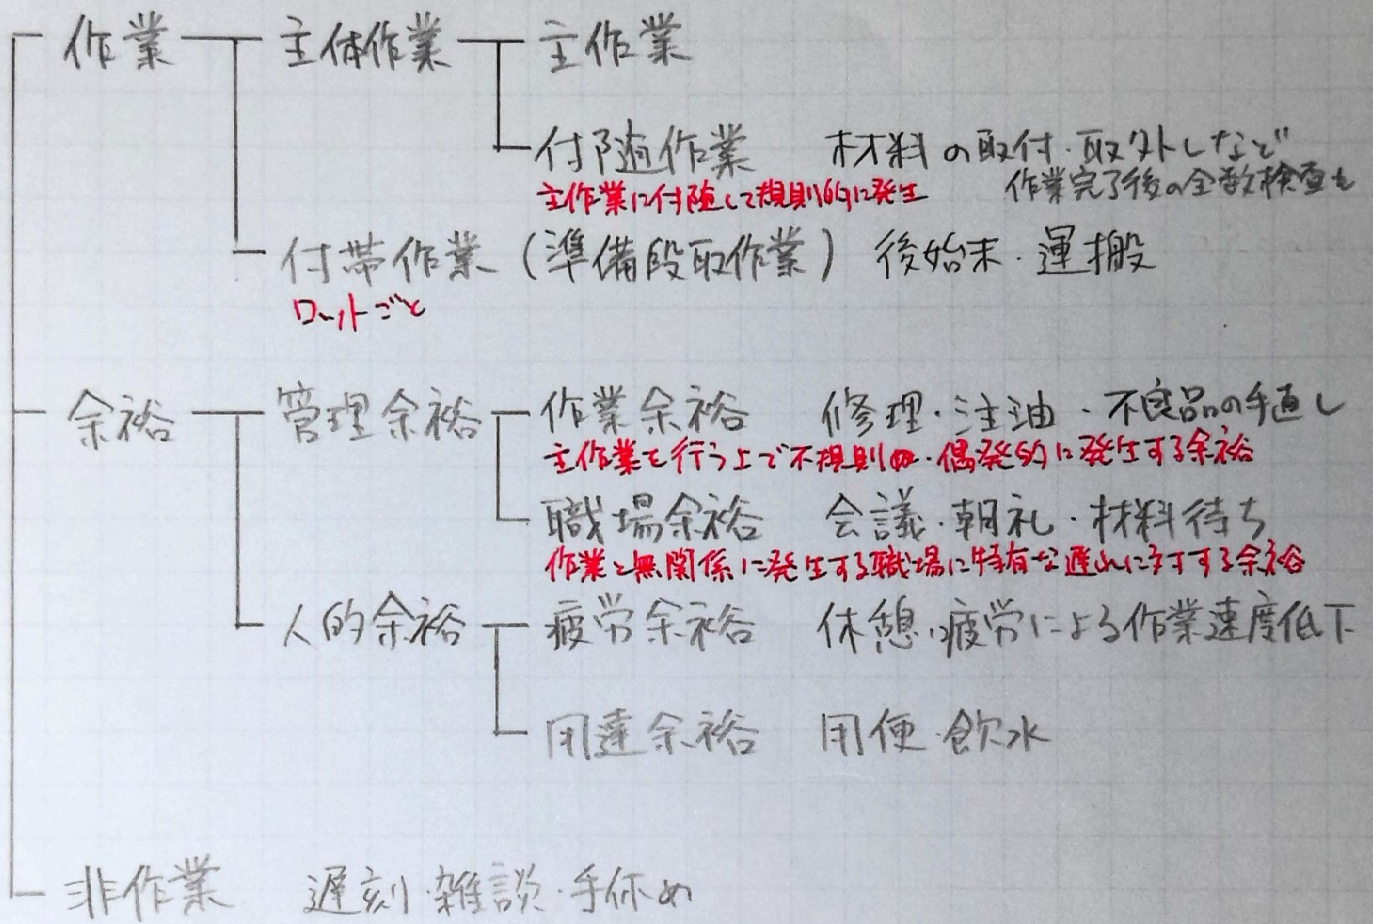 作業 主体作業 主作業
付随作業 材料の取付・取外しなど
主作業に付随して規則的に発生 作業完了後の全数検査も
付帯作業(準備段取作業) 後始末・運搬
ロットごと
余裕 管理余裕 作業余裕 修理・注油・不良品の手直し
主作業を行う上で不規則的・偶発的に発生する余裕
職場余裕 会議・朝礼・材料待ち
作業と無関係に発生する職場に特有な遅れに対する余裕
人的余裕 疲労余裕 休憩・疲労による作業速度低下
用達余裕 用便・飲水
非作業 遅刻・雑談・手休め